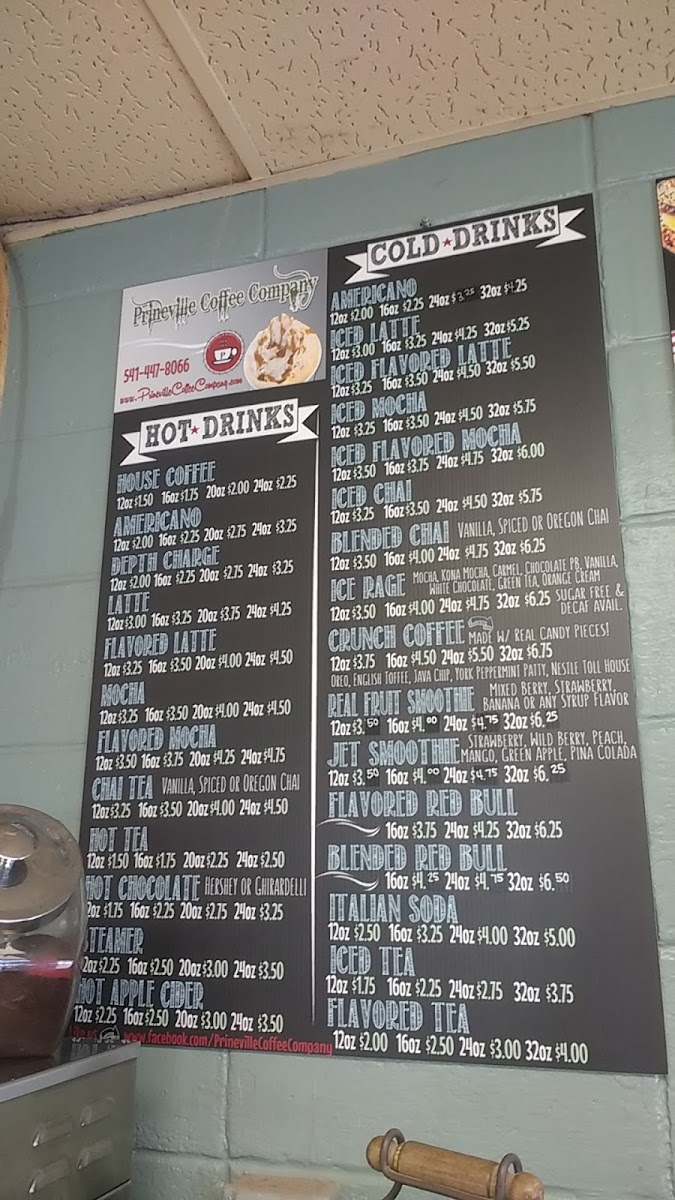 Prineville Coffee Company
541-447-8066
www.PrinevilleCoffeeCompany.com
HOT DRINKS
HOUSE COFFEE
12oz $1.50 16oz $1.75 20oz $2.00 24oz $2.25
AMERICANO
12oz $2.00 16oz $2.25 20oz $2.75 24oz $3.25
DEPTH CHARGE
12oz $2.00 16oz $2.25 20oz $2.75 24oz $3.25
LATTE
12oz $3.00 16oz $3.25 20oz $3.75 24oz $4.25
FLAVORED LATTE
12oz $3.25 16oz $3.50 20oz $4.00 24oz $4.50
MOCHA
12oz $3.25 16oz $3.50 20oz $4.00 24oz $4.50
FLAVORED MOCHA
12oz $3.50 16oz $3.75 20oz $4.25 24oz $4.75
CHAI TEA VANILLA, SPICED OR OREGON CHAI
12oz $3.25 16oz $3.50 20oz $4.00 24oz $4.50
HOT TEA
12oz $1.50 16oz $1.75 20oz $2.25 24oz $2.50
HOT CHOCOLATE HERSHEY OR GHIRARDELLI
2oz $1.75 16oz $2.25 20oz $2.75 24oz $3.25
STEAMER
2oz $2.25 16oz $2.50 20oz $3.00 24oz $3.50
HOT APPLE CIDER
12oz $2.25 16oz $2.50 20oz $3.00 24oz $3.50
www.facebook.com/PrinevilleCoffeeCompany
COLD DRINKS
AMERICANO
12oz $2.00 16oz $2.25 24oz $3.25 32oz $4.25
ICED LATTE
12oz $3.00 16oz $3.25 24oz $4.25 32oz $5.25
ICED FLAVORED LATTE
12oz $3.25 16oz $3.50 24oz $4.50 32oz $5.50
ICED MOCHA
12oz $3.25 16oz $3.50 24oz $4.50 32oz $5.75
ICED FLAVORED MOCHA
12oz $3.50 16oz $3.75 24oz $4.75 32oz $6.00
ICED CHAI
12oz $3.25 16oz $3.50 24oz $4.50 32oz $5.75
BLENDED CHAI VANILLA, SPICED OR OREGON CHAI
12oz $3.50 16oz $4.00 24oz $4.75 32oz $6.25
ICE RAGE MOCHA, KONA MOCHA, CARMEL, CHOCOLATE PB, VANILLA,
WHITE CHOCOLATE, GREEN TEA, ORANGE CREAM
12oz $3.50 16oz $4.00 24oz $4.75 32oz $6.25 SUGAR FREE &
DECAF AVAIL.
CRUNCH COFFEE MADE W/ REAL CANDY PIECES!
12oz $3.75 16oz $4.50 24oz $5.50 32oz $6.75
OREO, ENGLISH TOFFEE, JAVA CHIP, YORK PEPPERMINT PATTY, NESTLE TOLL HOUSE
REAL FRUIT SMOOTHIE MIXED BERRY, STRAWBERRY,
BANANA OR ANY SYRUP FLAVOR
12oz $3.50 16oz $4.00 24oz $4.75 32oz $6.25
JET SMOOTHIE STRAWBERRY, WILD BERRY, PEACH,
MANGO, GREEN APPLE, PINA COLADA
12oz $3.50 16oz $4.00 24oz $4.75 32oz $6.25
FLAVORED RED BULL
16oz $3.75 24oz $4.25 32oz $6.25
BLENDED RED BULL
16oz $4.25 24oz $4.75 32oz $6.50
ITALIAN SODA
12oz $2.50 16oz $3.25 24oz $4.00 32oz $5.00
ICED TEA
12oz $1.75 16oz $2.25 24oz $2.75 32oz $3.75
FLAVORED TEA
12oz $2.00 16oz $2.50 24oz $3.00 32oz $4.00